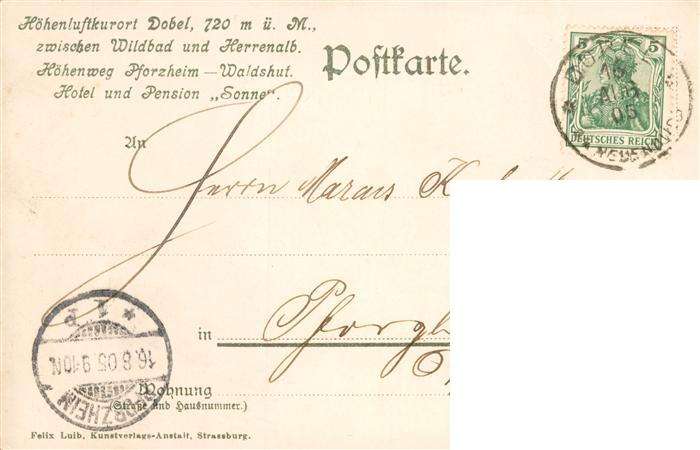 Höhenluftkurort Dobel, 720 m ü. M.,
zwischen Wildbad und Herrenalb.
Höhenweg Pforzheim — Waldshut.
Hotel und Pension „Sonne".
Postkarte.
5 5
DEUTSCHES REICH
DOBEL
15
AUG
05
An
Herrn
in
Wohnung
(Straße und Hausnummer.)
PFORZHEIM
16.8.05.9-10N.
* 1 P
Felix Luib, Kunstverlags-Anstalt, Strassburg.